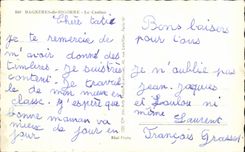 BAGNÈRES-de-BIGORRE - Le Casino
Chère tatie
je te remercie de
m'avoir donné des
timbres. Je suis très
content. Je travaille
de mon mieux en
classe. J'espère que
bonne maman va
mieux de jour en
jour
Bons baisers
pour tous
je n'oublie pas
Jean. Jaques
et Loulou ni
même Laurent
François